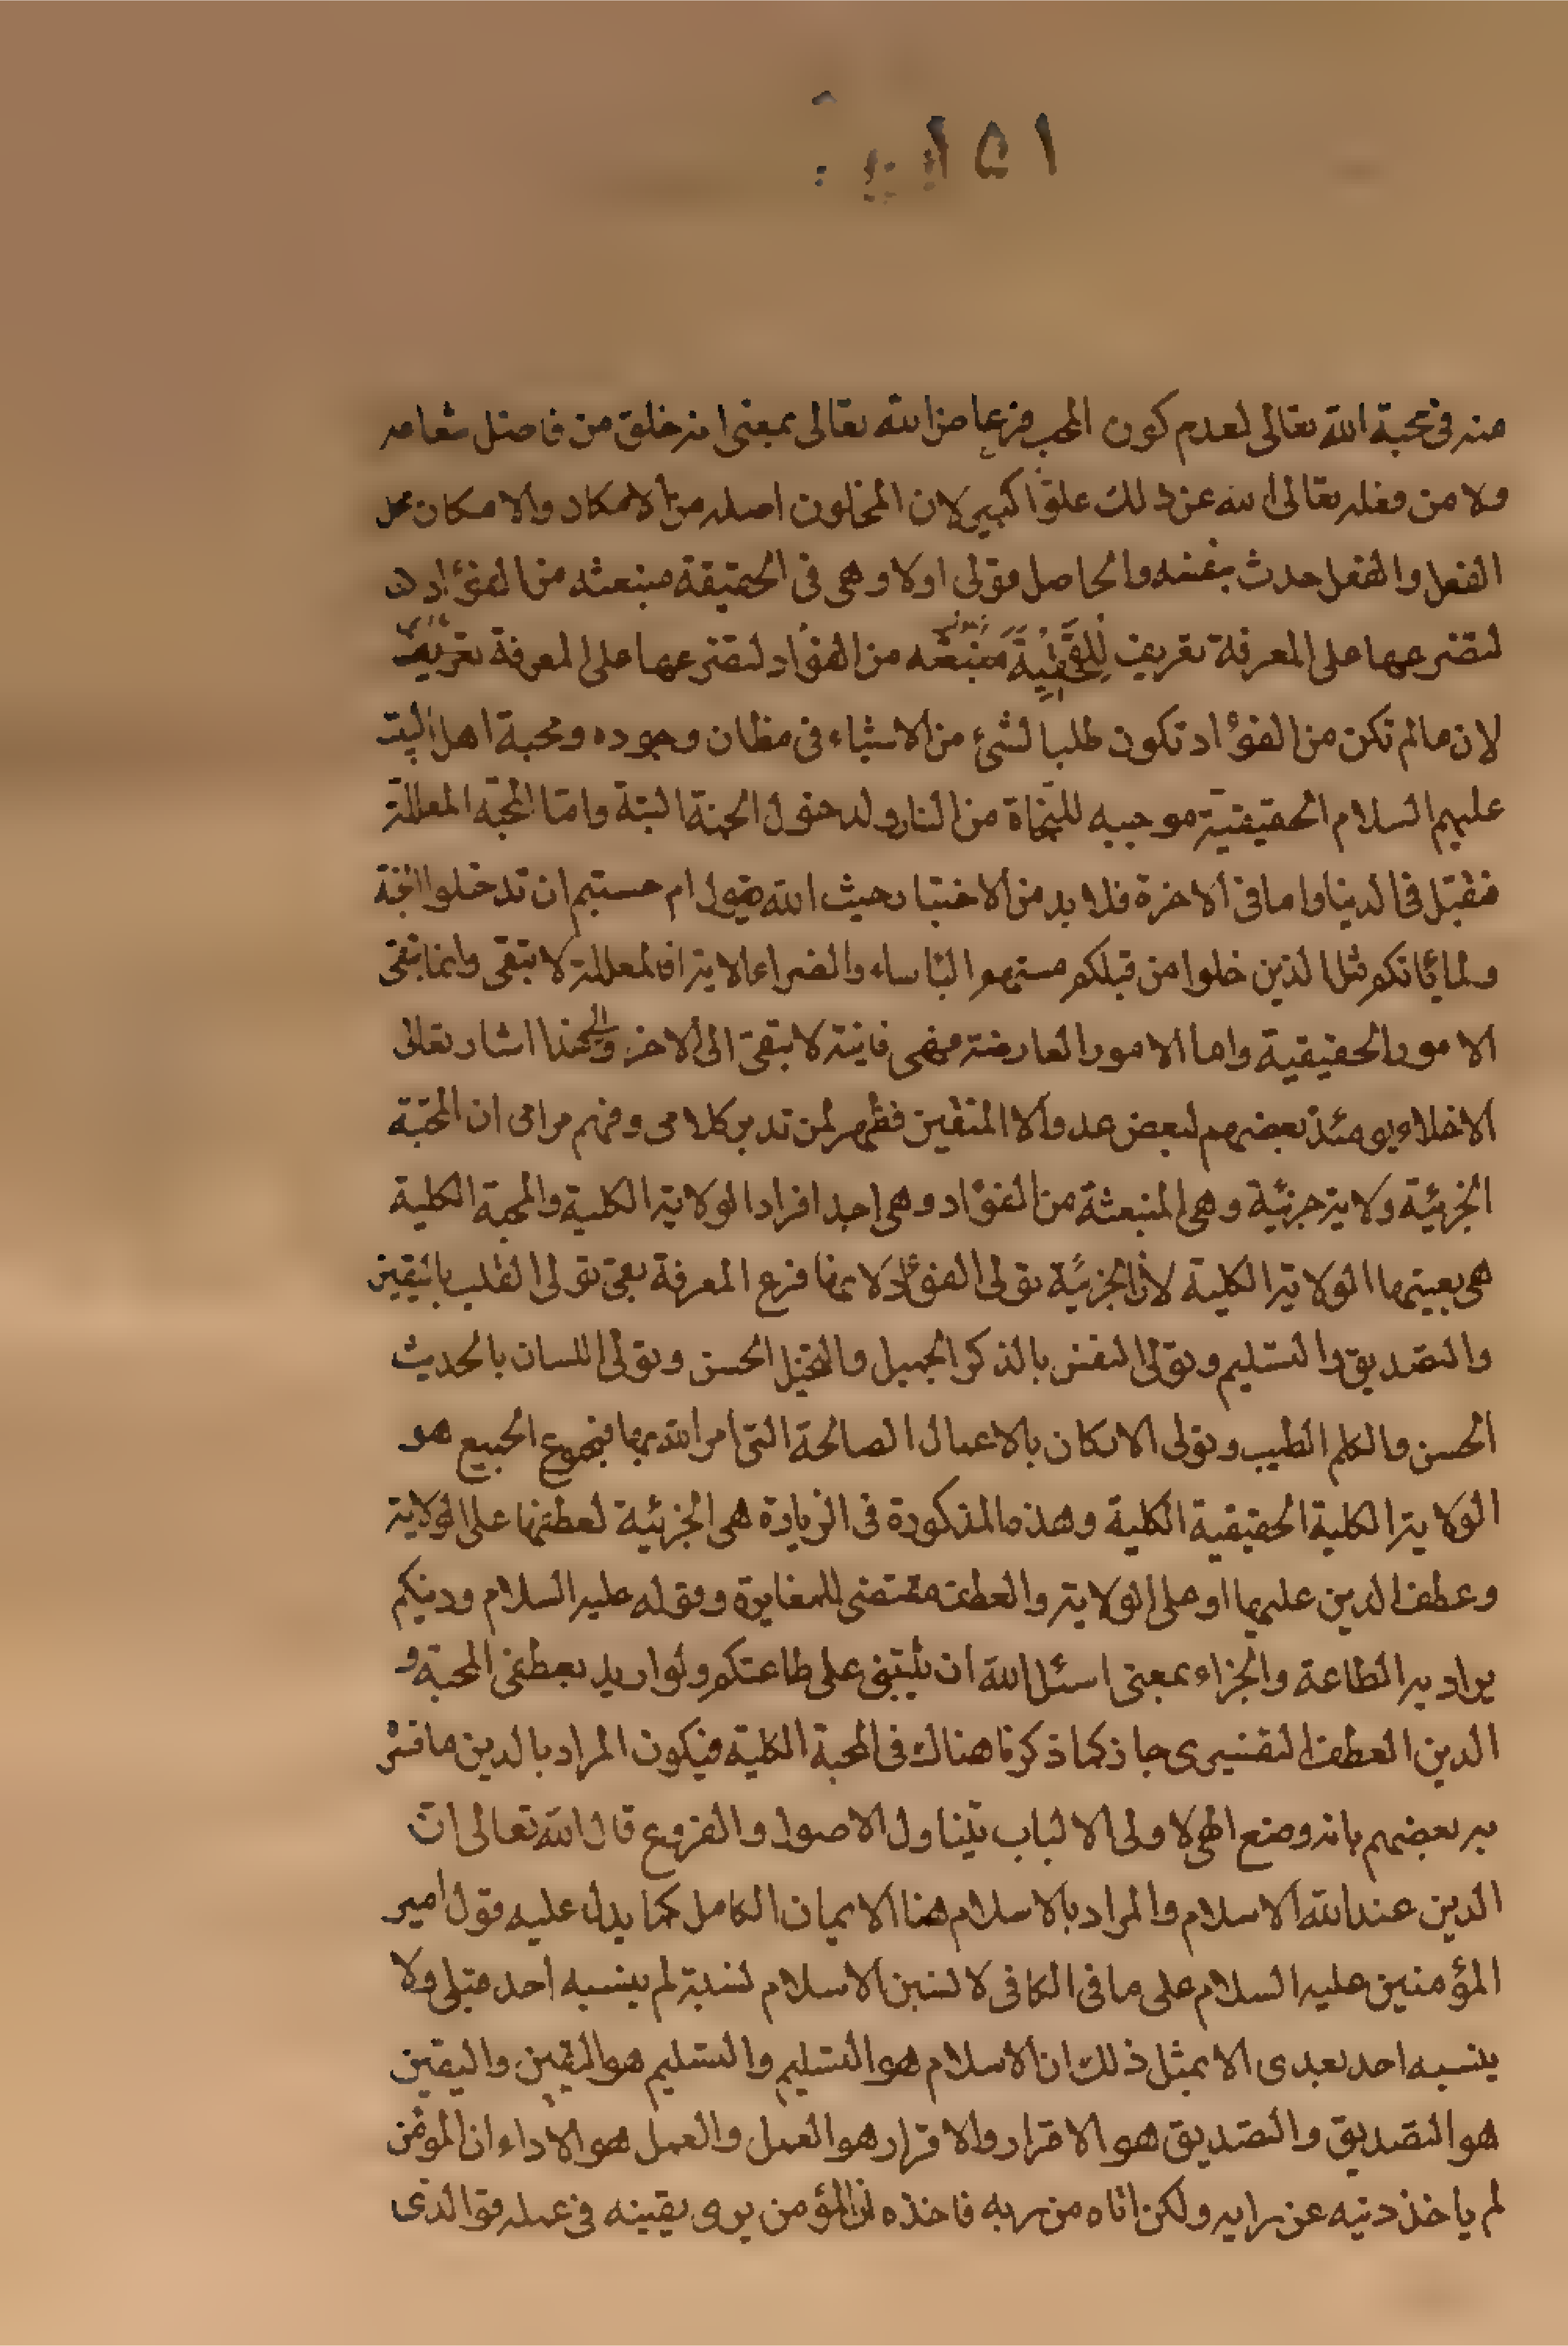 ١٥١
منه فى محبة الله تعالى لعدم كون المحب فرعا من الله تعالى بمعنى انه خلق من فاضل شعاعه
ولا من فعله تعالى الله عن ذلك علوّا كبيرا لان المخلوق اصله من الامكان والامكان محل
الفعل والفعل احدث بنفسه والحاصل قولى اولا وهى فى الحقيقة منبعثه من الفؤاد
لتفرعها على المعرفة تعريف للحقيقية منبعثه من الفؤاد لتفرعها على المعرفة تعريف
لان مالم تكن من الفؤاد تكون طلبا لشئ من الاشياء فى مظان وجوده ومحبة اهل البيت
عليهم السلام الحقيقيّة موجبه للنّجاة من النار ولدخول الجنة البتة وامّا المحبّه المعللة
فتقبل فى الدنيا واما فى الاخرة فلا بد من الاختبار حيث الله يقول ام حسبتم ان تدخلوا الجنة
ولما يأتكم مثل الذين خلوا من قبلكم مستهم البأساء والضراء الاية فالمعللة لا تبقى وانما تبقى
الامور الحقيقية واما الامور العارضة فهى فانية لا تبقى الى الاخرة والى هذا اشار تعالى
الاخلاء يومئذ بعضهم لبعض عدو الا المتقين فظهر لمن تدبر كلامى وفهم مرامى ان المحبّة
الجزئيّة ولاية جزئيّة وهى المنبعثة من الفؤاد وهى احد افراد الولاية الكلية والمحبة الكلية
هى بعينها الولاية الكلية لان الجزئيّة تولى الفؤاد لانها فرع المعرفة بقى تولى القلب باليقين
والتصديق والتسليم وتولى النفس بالذكر الجميل والتخيّل الحسن وتولى اللسان بالحديث
الحسن والكلم الطيب وتولى الاركان بالاعمال الصالحة التى امر الله بها فمجموع الجميع هو
الولاية الكلية الحقيقية الكلية وهذه المذكورة فى الزيارة هى الجزئية لعطفها على الولاية
وعطف الدين عليها او على الولاية والعطف مقتضى للمغايرة وقوله عليه السلام ودينكم
يراد به الطاعة والجزاء بمعنى اسئل الله ان يثبتنى على طاعتكم ولو اريد بعطفى المحبة و
الدين العطف التفسيرى جاز كما ذكرنا هناك فى المحبة الكلية فيكون المراد بالدين ما فسّر
به بعضهم بانه وضع الهى لاولى الالباب يتناول الاصول والفروع قال الله تعالى انّ
الدين عند الله الاسلام والمراد بالاسلام هنا الايمان الكامل كما يدل عليه قول امير
المؤمنين عليه السلام على ما فى الكافى لانسبن الاسلام نسبة لم ينسبه احد قبلى ولا
ينسبه احد بعدى الا بمثل ذلك ان الاسلام هو التسليم والتسليم هو اليقين واليقين
هو التصديق والتصديق هو الاقرار والاقرار هو العمل والعمل هو الاداء ان المؤمن
لم ياخذ دينه عن رايه ولكن اتاه من ربه فاخذه ان المؤمن يرى يقينه فى عمله فو الذى